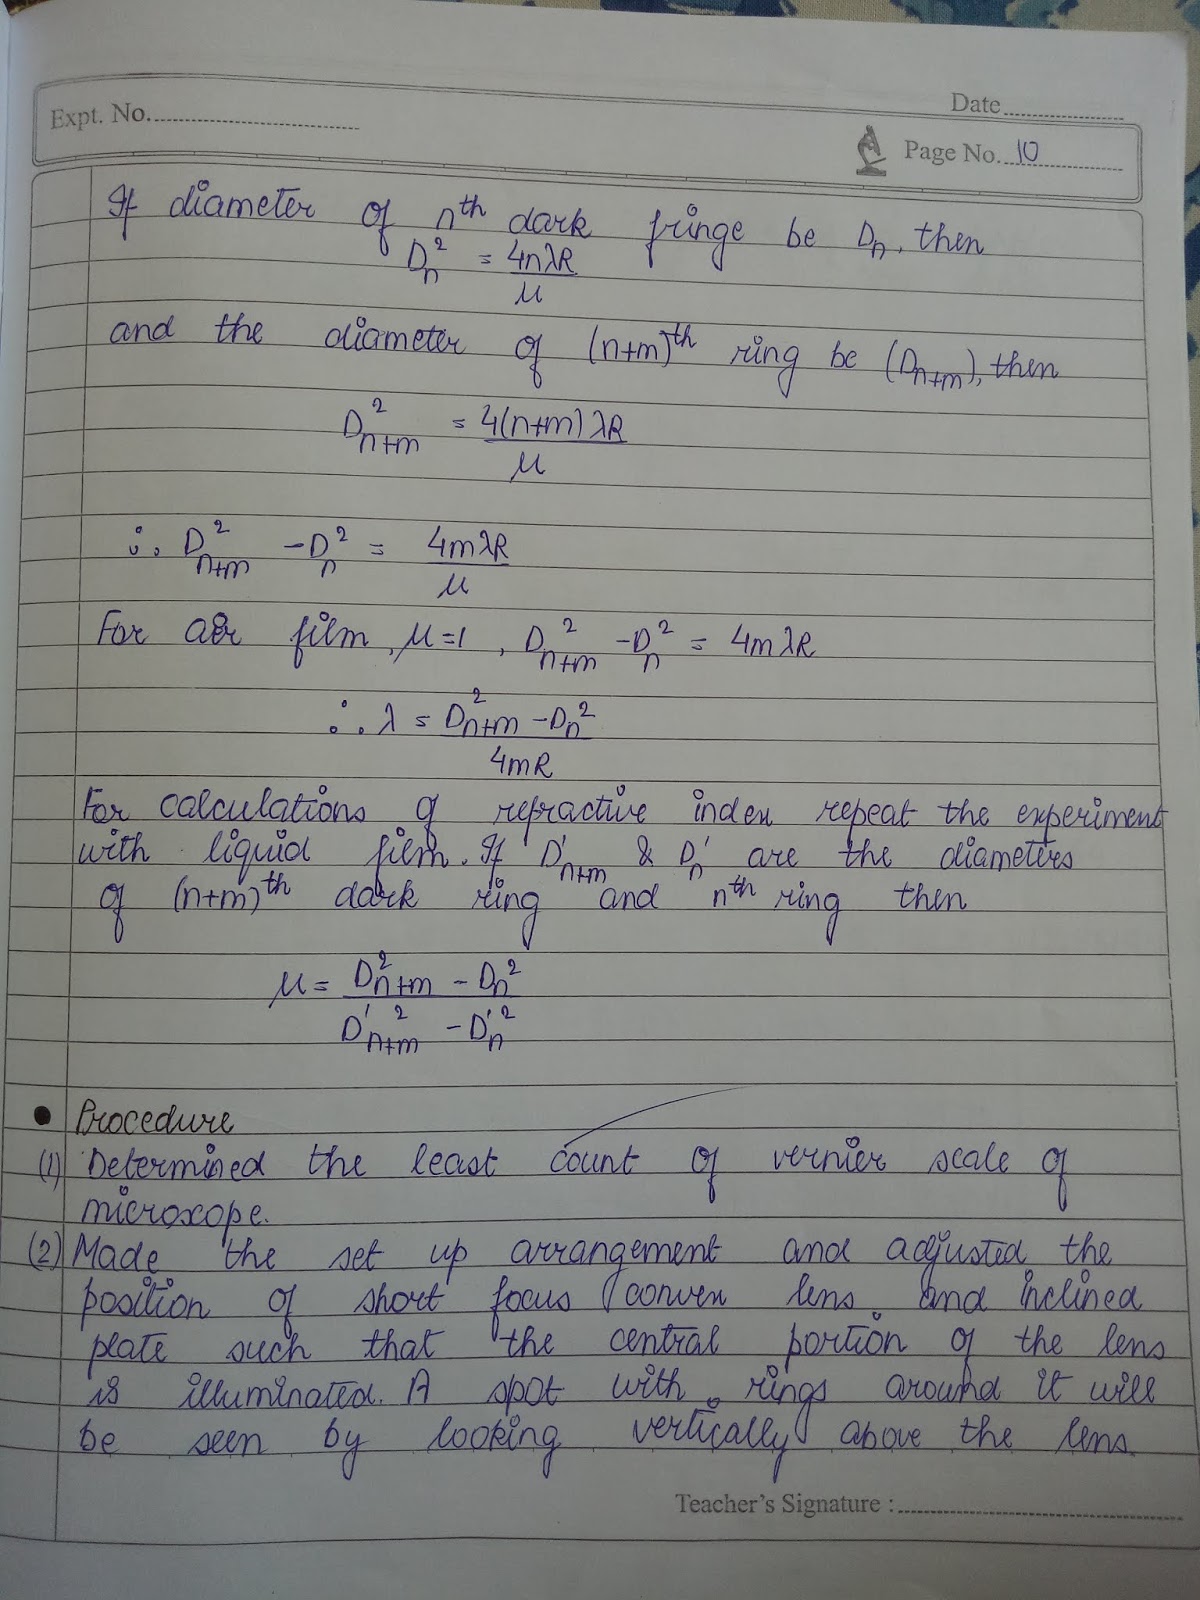 Expt. No.
Date
Page No. 10
If diameter of nth dark fringe be Dn, then
Dn² = 4nλR
μ
and the diameter of (n+m)th ring be (Dn+m), then
D²n+m = 4(n+m)λR
μ
∴ D²n+m - Dn² = 4mλR
μ
For air film, μ=1, D²n+m - Dn² = 4mλR
∴ λ = D²n+m - Dn²
4mR
For calculations of refractive index repeat the experiment
with liquid film. If D'n+m & Dn' are the diameters
of (n+m)th dark ring and nth ring then
μ = D²n+m - Dn²
D'²n+m - D'n²
• Procedure
(1) Determined the least count of vernier scale of
microxope.
(2) Made the set up arrangement and adjusted the
position of short focus convex lens and inclined
plate such that the central portion of the lens
is illuminated. A spot with rings around it will
be seen by looking vertically above the lens
Teacher's Signature :